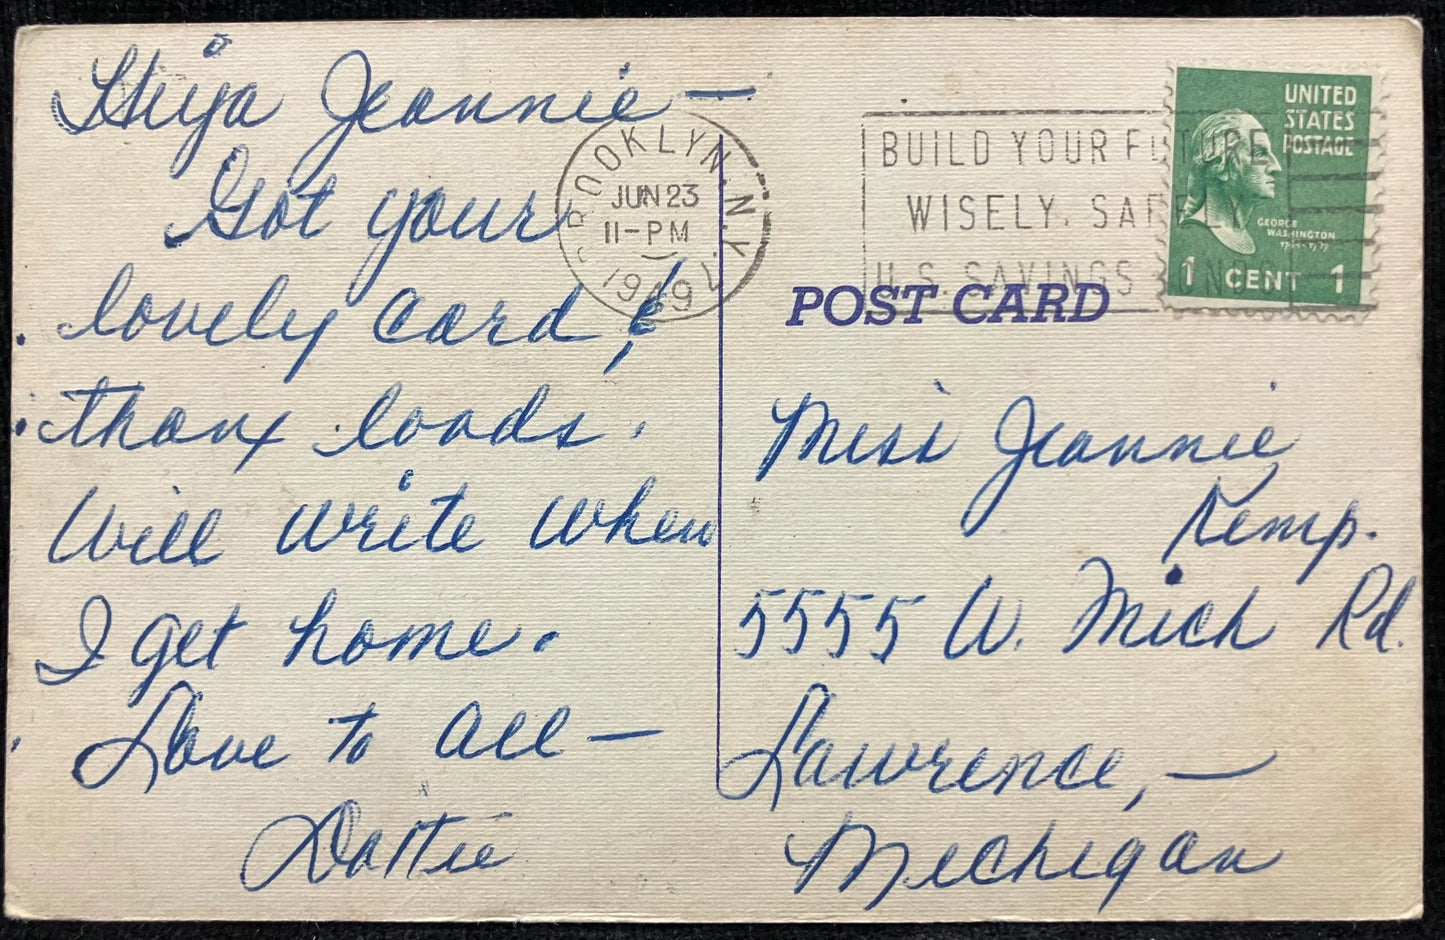 Hiya Jeannie —
Got your
lovely card, &
thanx loads.
Will write when
I get home.
Love to all —
Dottie
BROOKLYN, N.Y.
JUN 23
11-PM
1949
BUILD YOUR FUTURE
WISELY, SAFELY
U.S. SAVINGS BONDS
UNITED
STATES
POSTAGE
GEORGE
WASHINGTON
1789-1797
1 CENT 1
POST CARD
Miss Jeannie
Kemp.
5555 W. Mich Rd.
Lawrence, —
Michigan